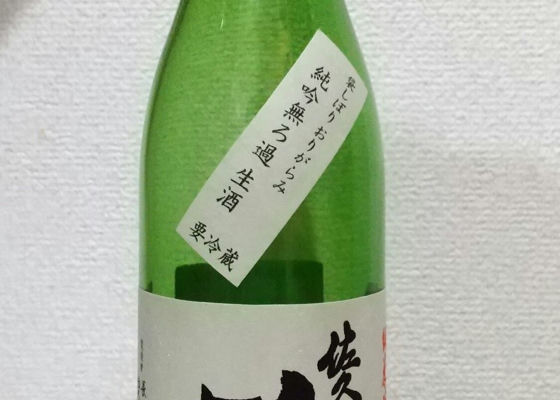 袋しぼりおりがらみ
純吟無ろ過生酒
要冷蔵
佐久